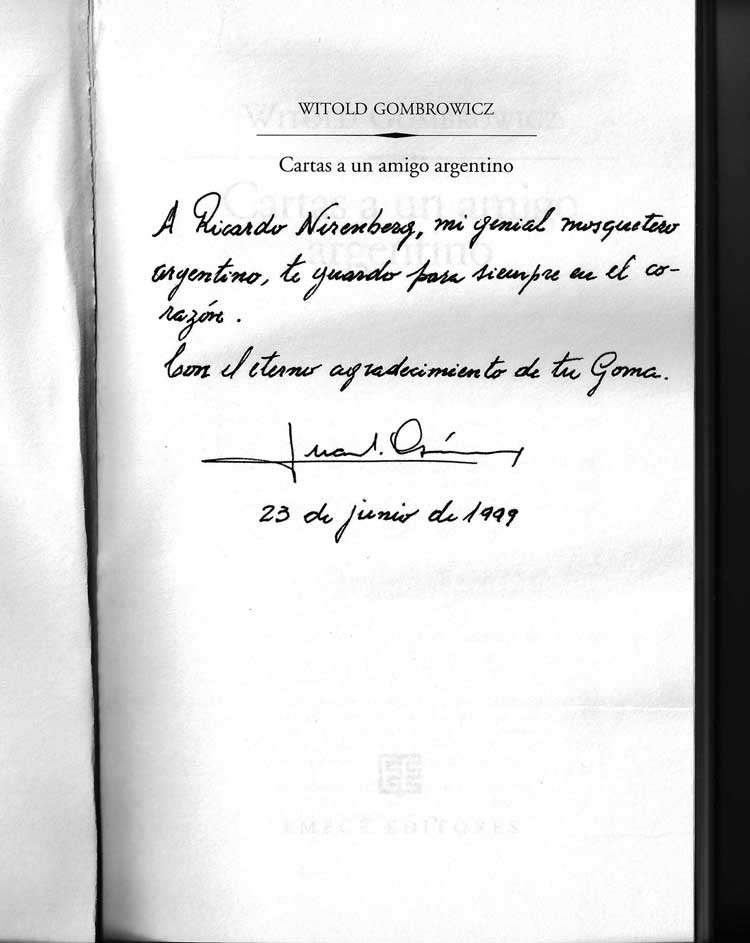 WITOLD GOMBROWICZ
Cartas a un amigo argentino
A Ricardo Nirenberg, mi genial mosquetero
argentino, te guardo para siempre en el co-
razón.
Con el eterno agradecimiento de tu Goma.
Juan
23 de junio de 1999
WITOLD GOMBROWICZ
Cartas a un amigo
argentino
EMECÉ EDITORES